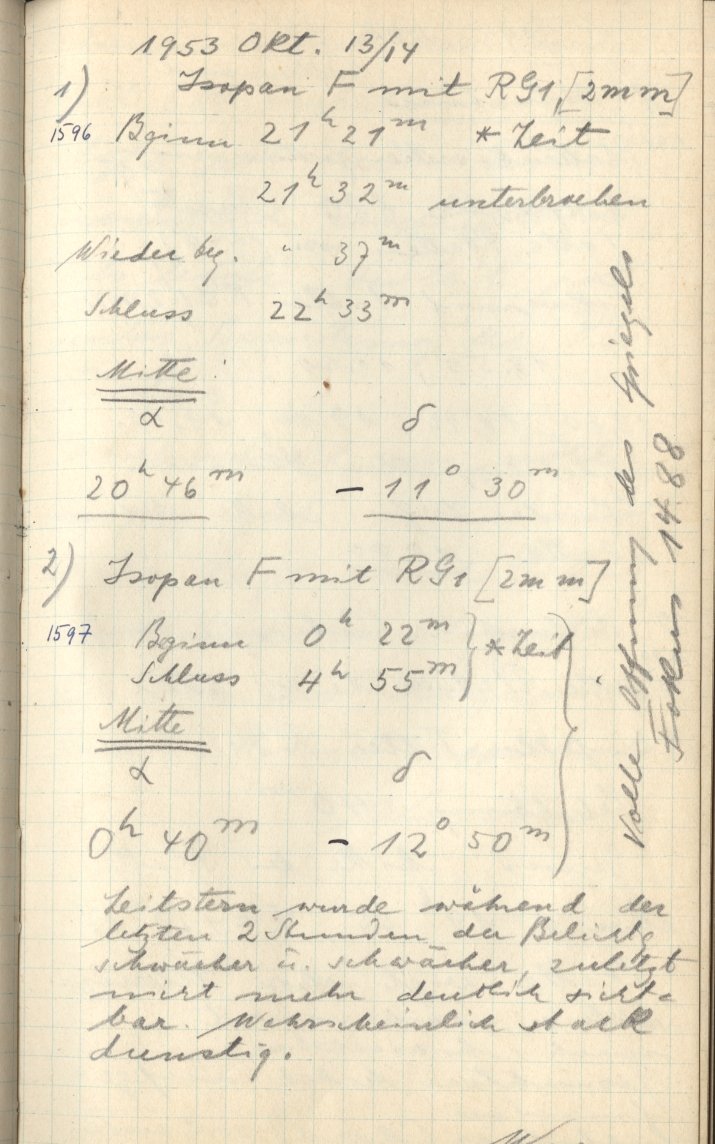 1953 Okt. 13/14
1) Isopan F mit RG1, [2mm]
1596 Beginn 21h 21m *Zeit
21h 32m unterbrochen
Wieder beg. " 37m
Schluss 22h 33m
Mitte:
α δ
20h 46m - 11° 30m
2) Isopan F mit RG1 [2mm]
1597 Beginn 0h 22m } *Zeit
Schluss 4h 55m
Mitte
α δ
0h 40m - 12° 50m
Leitstern wurde während der
letzten 2 Stunden der Belichtg
schwächer u. schwächer, zuletzt
nicht mehr deutlich sicht-
bar. Wahrscheinlich stark
dunstig.
Volle Öffnung des Spiegels
Fokus 14.88